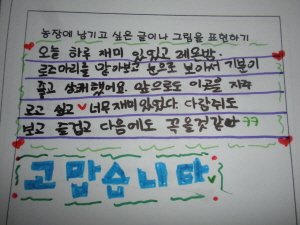 농장에 남기고 싶은 글이나 그림을 표현하기
오늘 하루 재미 있었고 레몬밤.
로즈마리를 맡아보고 눈으로 보아서 기분이
좋고 상쾌했어요. 앞으로도 이곳을 자주
오고 싶고 너무 재미있었다. 다람쥐도
보고 즐겁고 다음에도 꼭올것같아 ㅋㅋ
고맙습니다